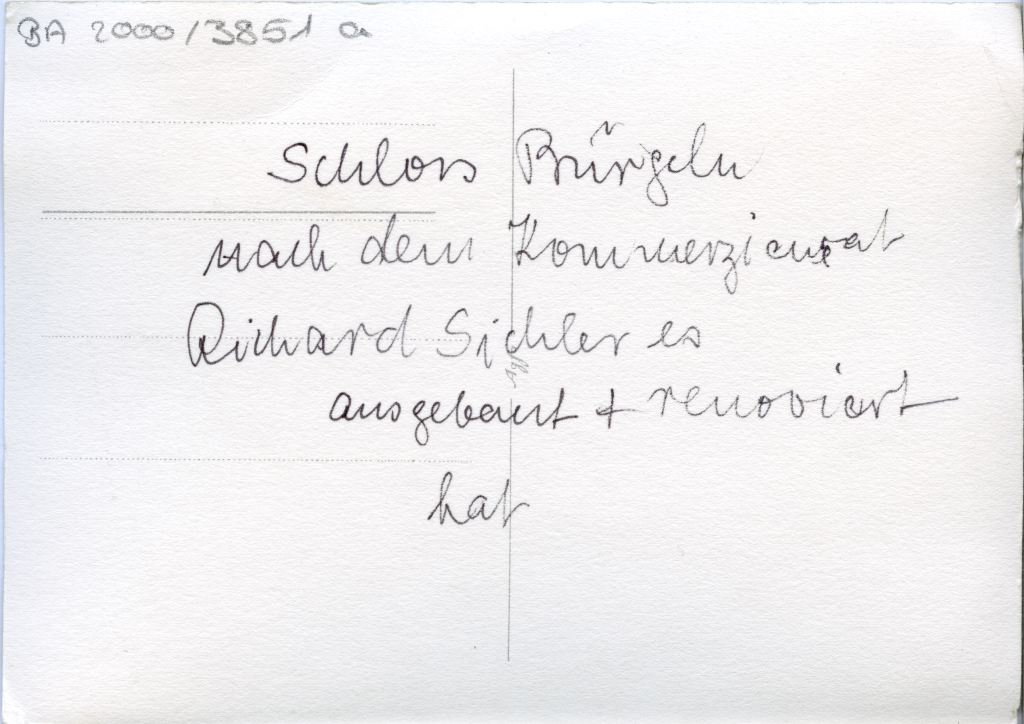 BA 2000/3851 a
Schloss Bürgeln
nach dem Kommerzienrat
Richard Sichler es
ausgebaut + renoviert
hat